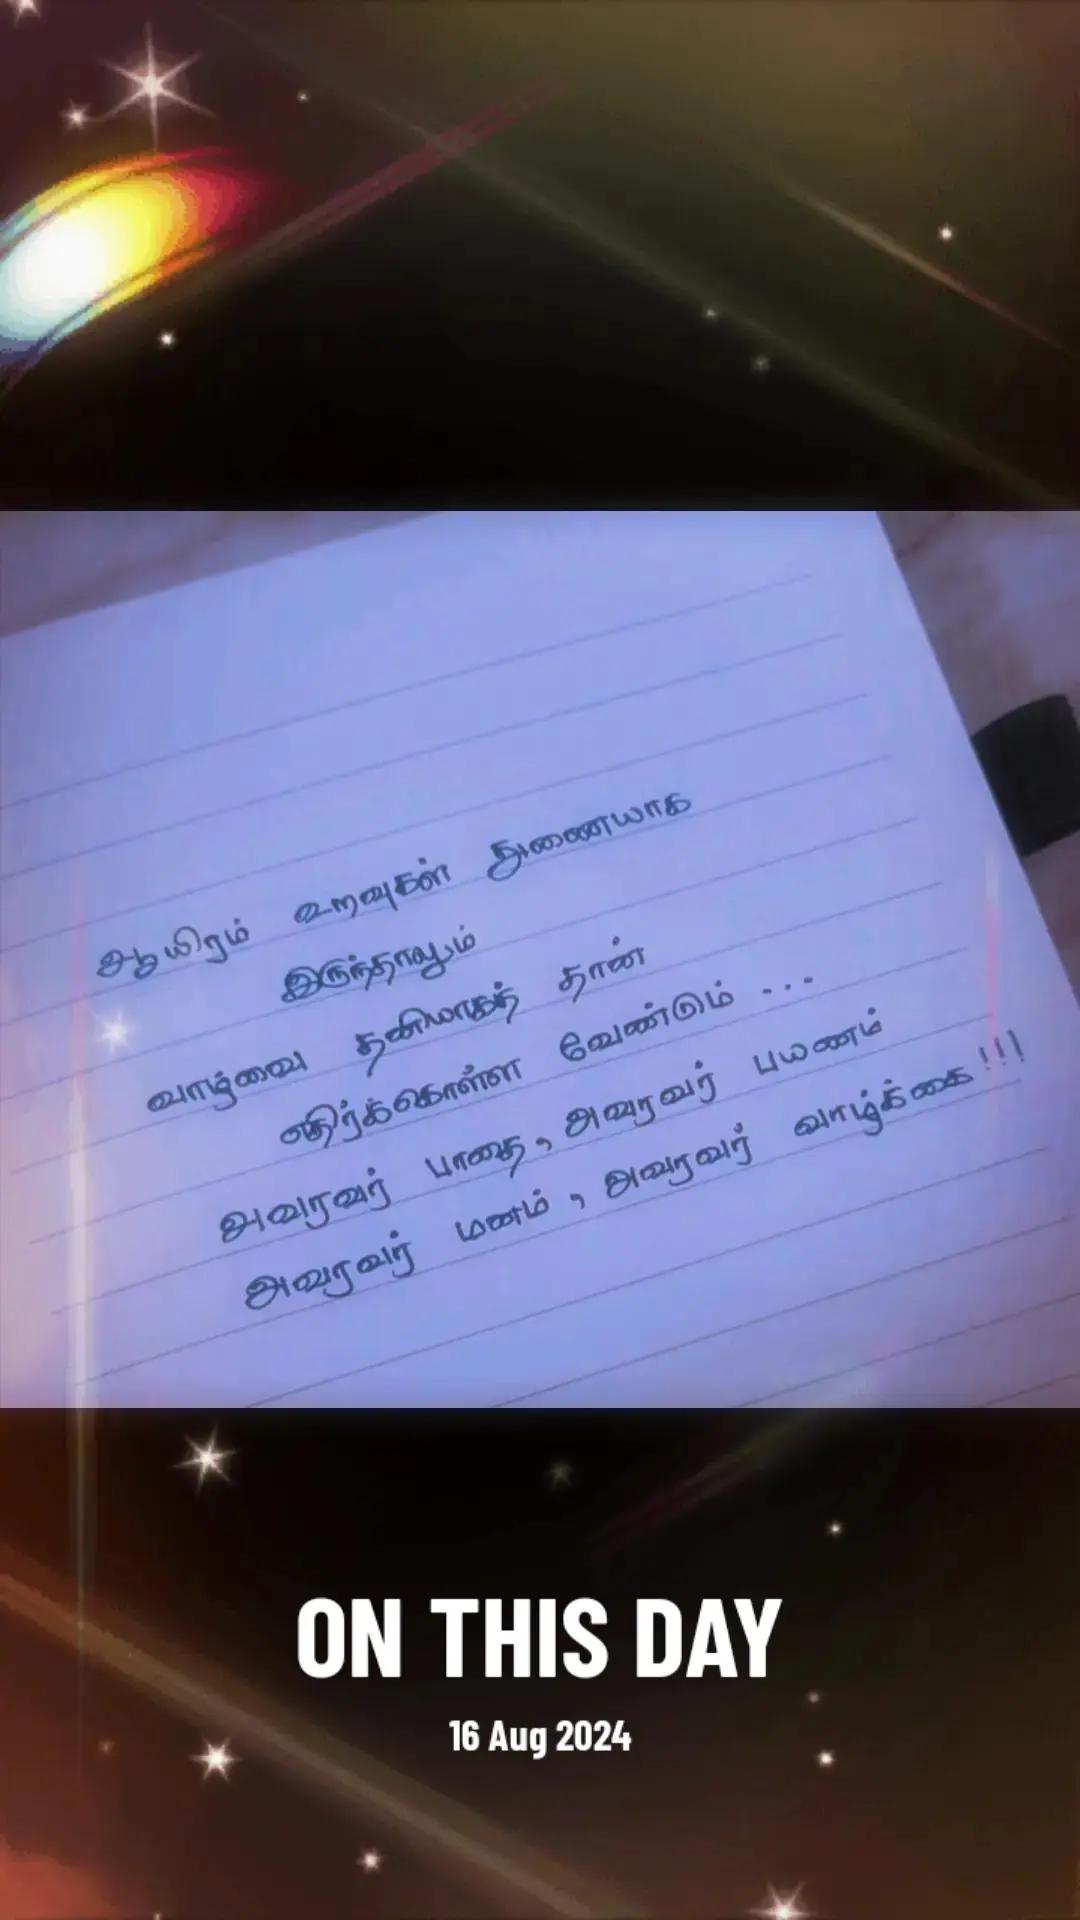 ஆயிரம் உறவுகள் துணையாக
இருந்தாலும்
வாழ்வை தனியாகத் தான்
எதிர்க்கொள்ள வேண்டும் ...
அவரவர் பாதை, அவரவர் பயணம்
அவரவர் மனம், அவரவர் வாழ்க்கை!!!
ON THIS DAY
16 Aug 2024